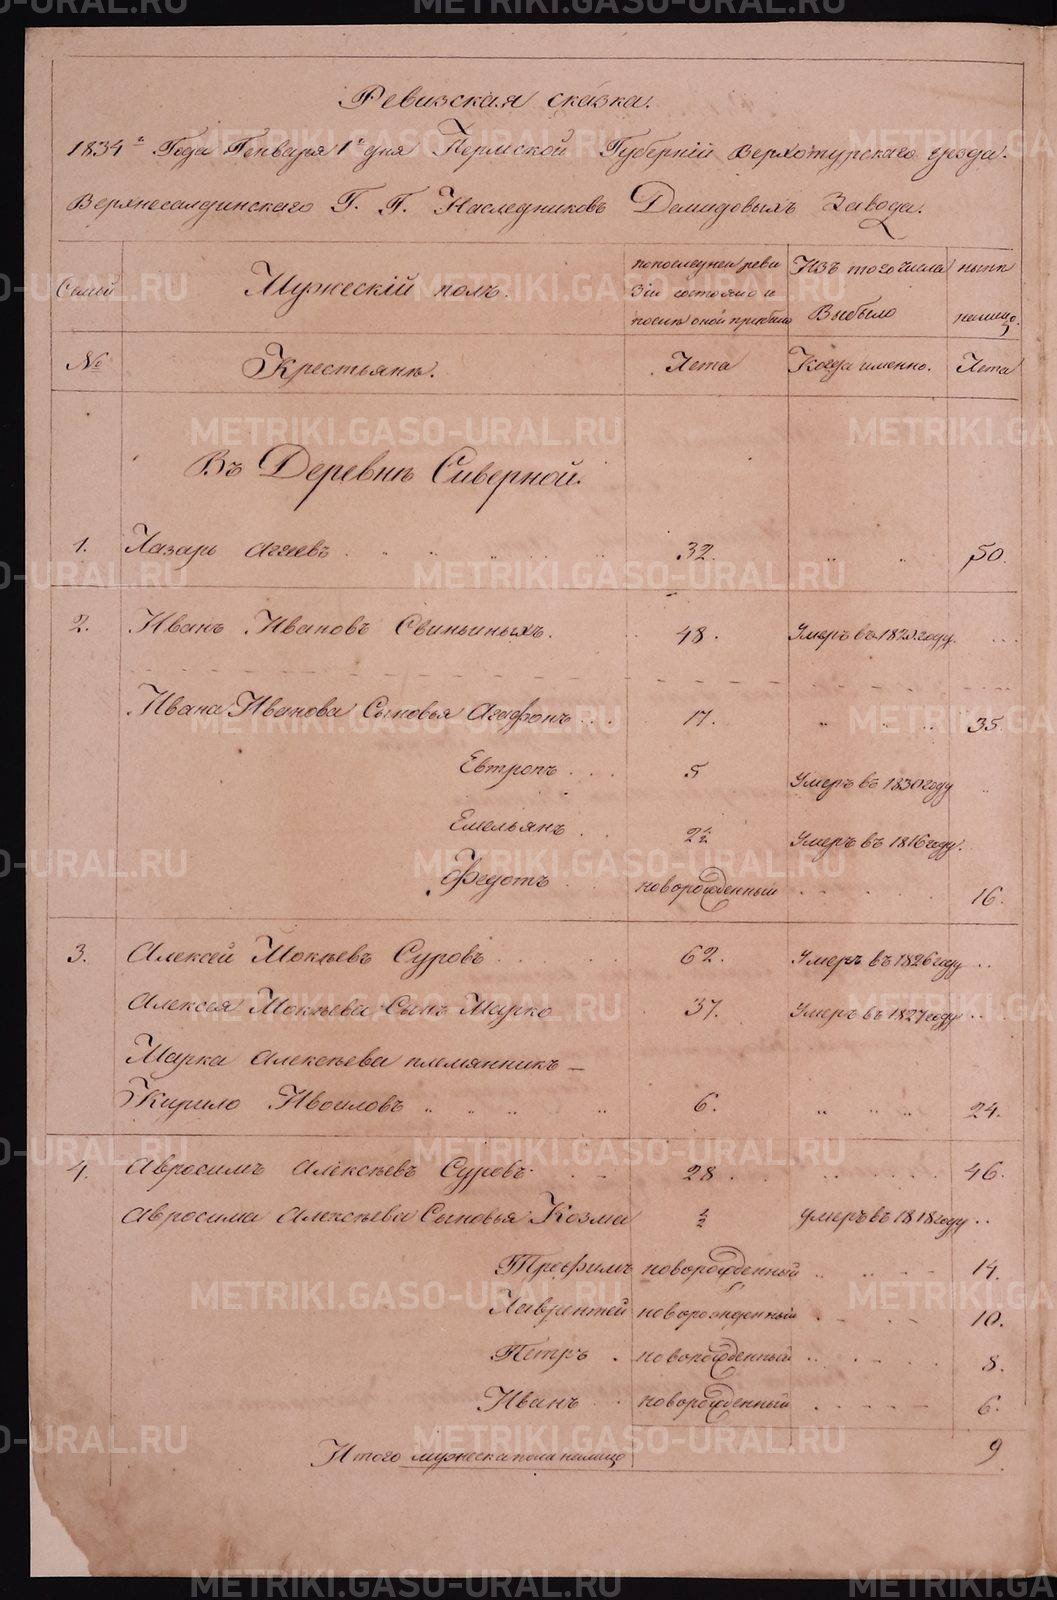 Ревизская сказка.
1834го Года Генваря 1го дня Пермской Губернiй Верхотурскаго уезда.
Верхнесалдинскаго Г. Г. Наследниковъ Демидовыхъ Завода.
Семей Мужескiй полъ. попоследней реви Изъ того числа ныне
зiи состояло и Выбыло налицо.
после оной прибыло
№ Крестьянъ. Лета Когда именно. Лета
Въ Деревнѣ Сиверной.
1. Лазарь Агеевъ 32. 50.
2. Иванъ Ивановъ Свиньиныхъ. 48. Умеръ въ году.
Ивана Иванова Сыновья Агафонъ 17. 35.
Евтропъ 5 Умеръ въ 1830 году
Емельянъ 2½ Умеръ въ 1816 году.
Федотъ новорожденный 16.
3. Алексей Мокѣевъ Суровъ 62. Умеръ въ 1826 году
Алексея Мокѣева Сынъ Марко 37. Умеръ въ 1827 году
Марка Алексѣева племянникъ
Кирило 6. 24.
4. Авросимъ Алексѣевъ Суровъ 28. 46.
Авросима Алексѣева Сыновья Козма ½ Умеръ въ 1818 году
Трофимъ новорожденный 14.
Лаврентей новорожденный 10.
Петръ новорожденный 8.
Иванъ новорожденный 6.
Итого мужеска пола налицо 9
METRIKI.GASO-URAL.RU